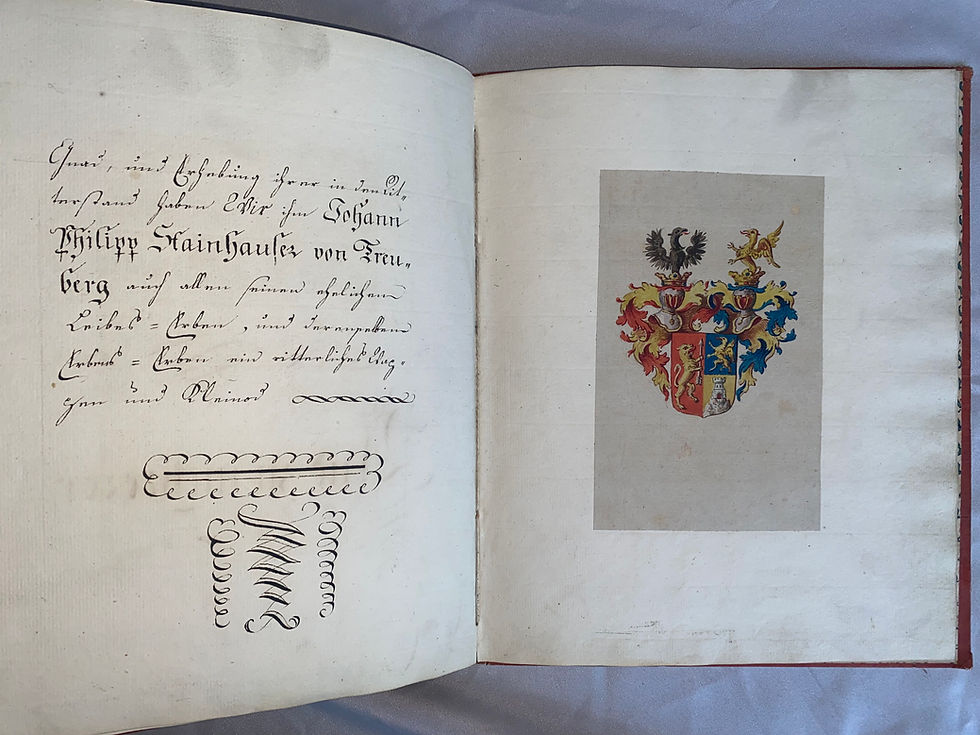 Gnad, und Erhebung ihrer in den Rit-
terstand haben Wir ihm Johann
Philipp Stainhauser von Treu-
berg auch allen seinen ehelichen
Leibes = Erben, und derenselben
Erbens = Erben ein ritterliches Wap-
pen und Kleinod